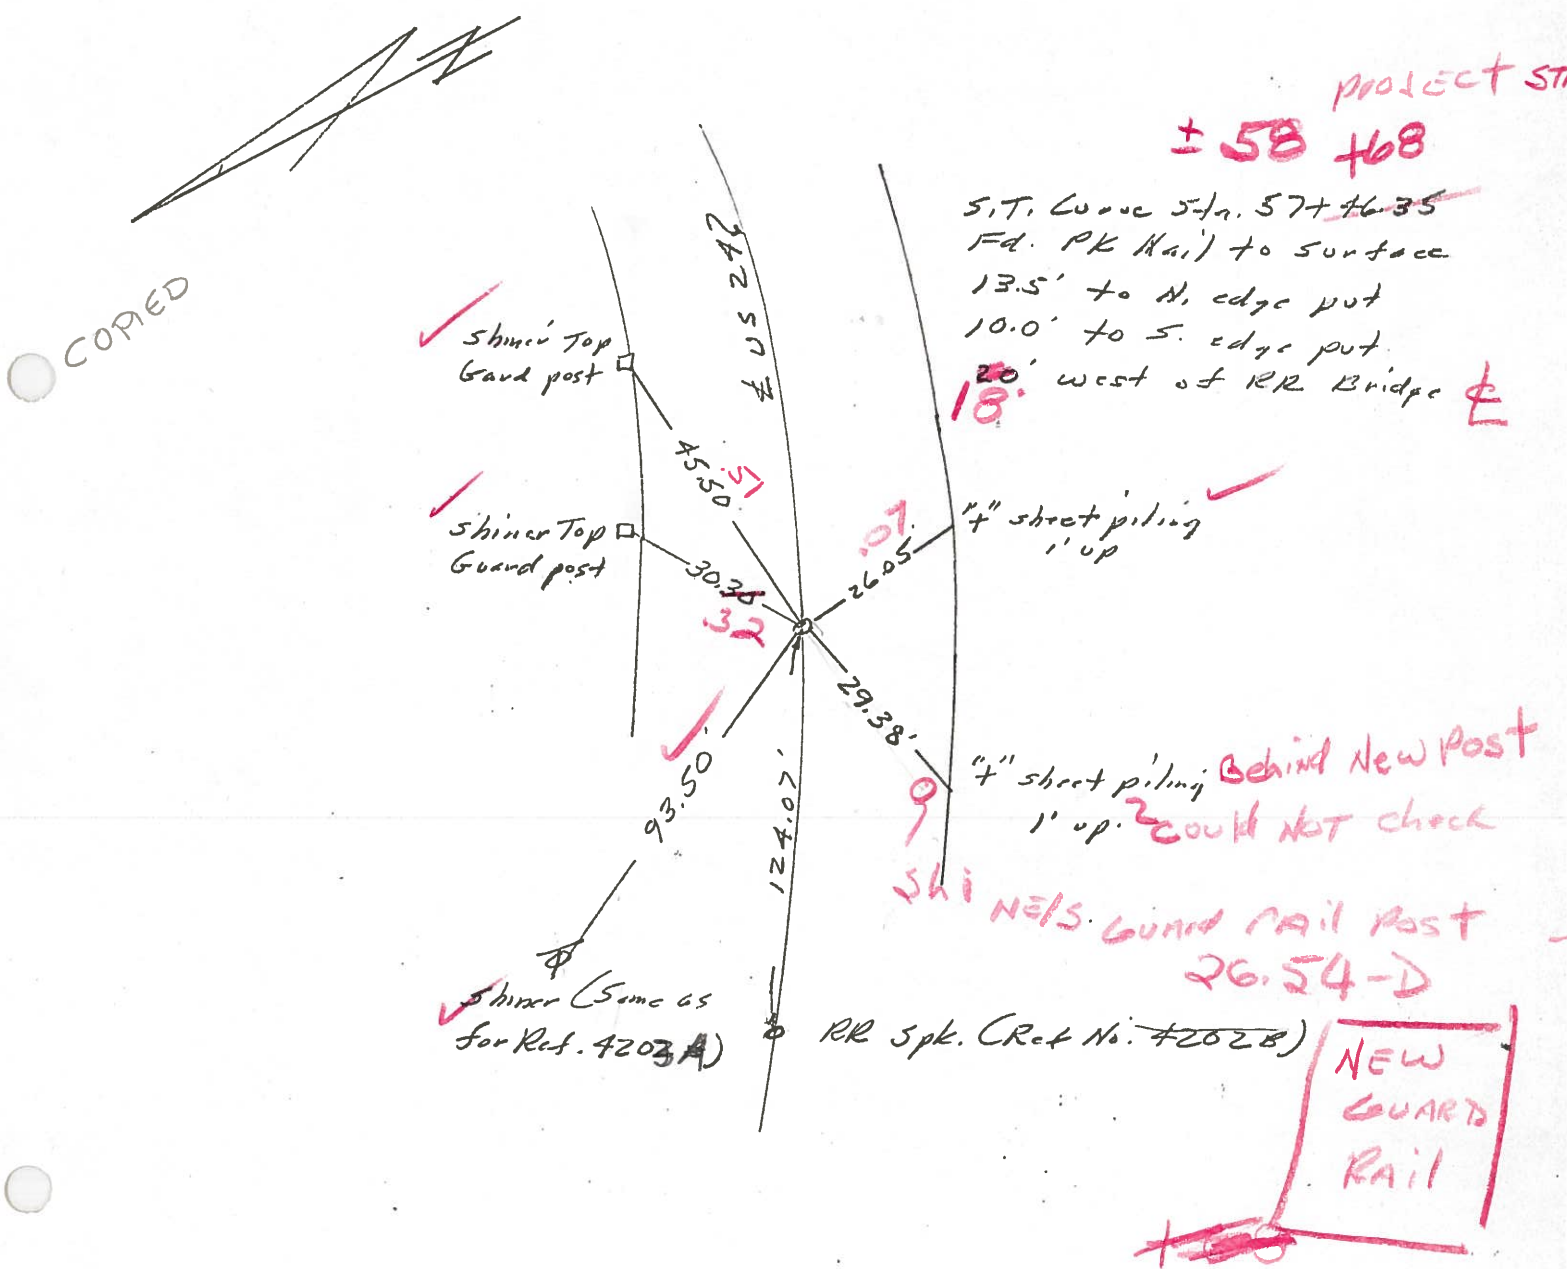 N
PROJECT STA
± 58 +68
S.T. Curve Sta. 57+46.35
Fd. PK Nail to surface
13.5' to N. edge pvt
10.0' to S. edge pvt.
20' west of RR Bridge ℄
18'
COPIED
℄ US 24
Shiner Top
Gard post
45.50
.51
Shiner Top
Guard post
30.30
.32
.07
26.05
"+" sheet piling
1' up
29.38'
"+" sheet piling Behind New Post
1' up. ? Could NOT check
93.50'
124.07'
Shi NE/S. Guard Rail Post
26.54-D
Shiner (Same as
for Ref. 4203A)
RR Spk. (Ref No. 4202B)
NEW
GUARD
RAil